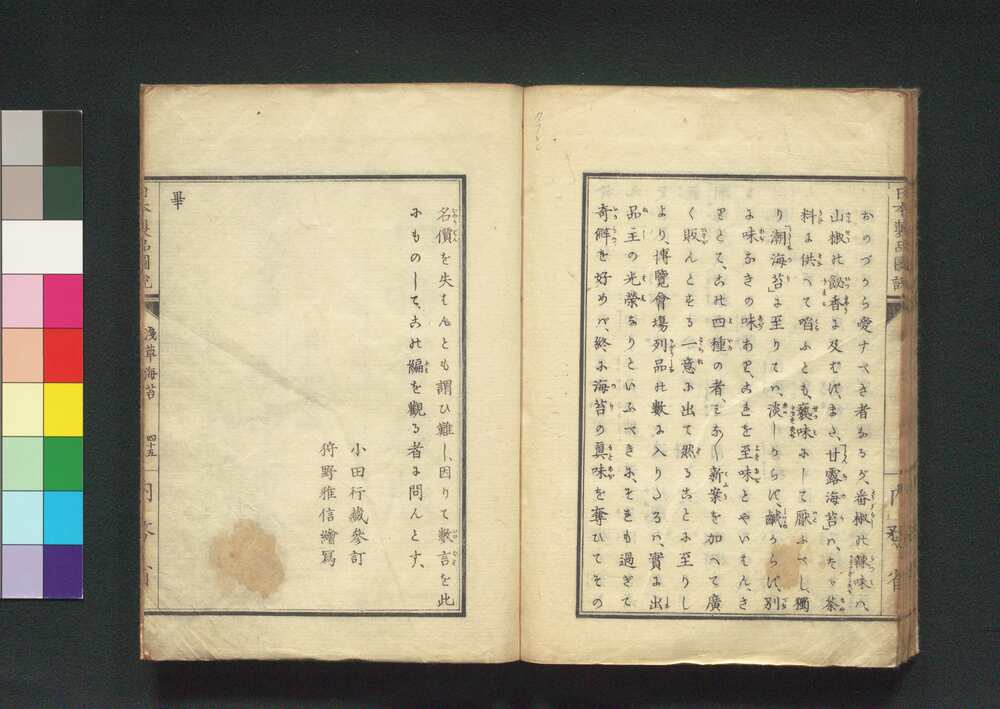 おのづから愛すべき者なるが、番椒の辣味ハ、
山椒の馥香に及ばず、また、「甘露海苔」ハ、たゞ茶
料に供へて啗ふとも、褻味にして厭ふべし、獨
り「潮海苔」に至りてハ、淡しからず、鹹からず、別
に味なきの味あり、これを至味とやいはん、さ
りとて、この四種の者、みな新案を加へて廣
く販んとする一意に出て然ることに至りし
より、博覽會塲列品の數に入りたるハ、實に出
品主の光榮なりといふべきに、それも過ぎて
奇僻を好めバ、終に海苔の眞味を奪ひてその
名價を失はんとも謂ひ難し、因りて數言を此
にものして、この編を觀る者に問んとす、
小田行藏參訂
狩野雅信繪寫
畢
日本製品圖説
淺草海苔
四十五
内務省